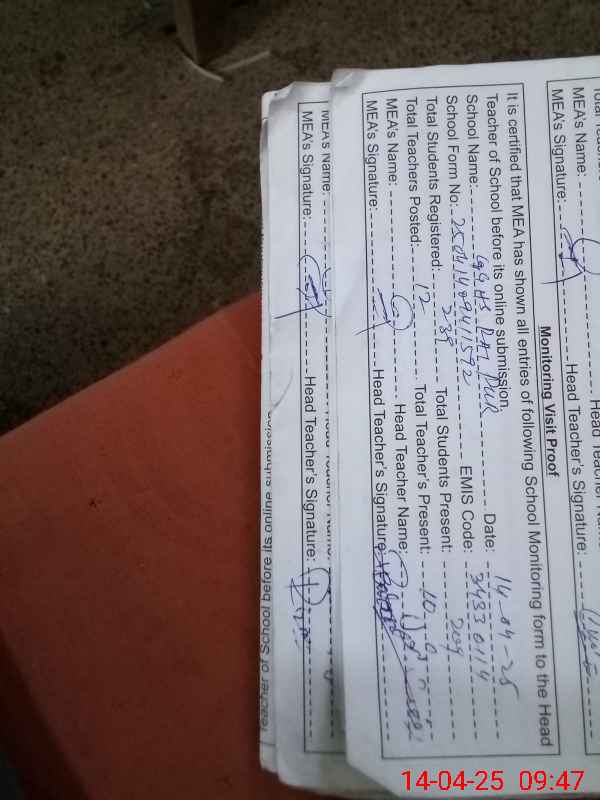 MEA's Name:
MEA's Signature: Head Teacher's Signature:
Monitoring Visit Proof
It is certified that MEA has shown all entries of following School Monitoring form to the Head
Teacher of School before its online submission.
School Name: GGHS RAI PUR Date: 14-04-25
School Form No: EMIS Code: 34330114
Total Students Registered: 239 Total Students Present: 209
Total Teachers Posted: 12 Total Teacher's Present: 10
MEA's Name: Head Teacher Name:
MEA's Signature: Head Teacher's Signature:
MEA's Name: Head Teacher Name:
MEA's Signature: Head Teacher's Signature:
Teacher of School before its online submission
14-04-25 09:47